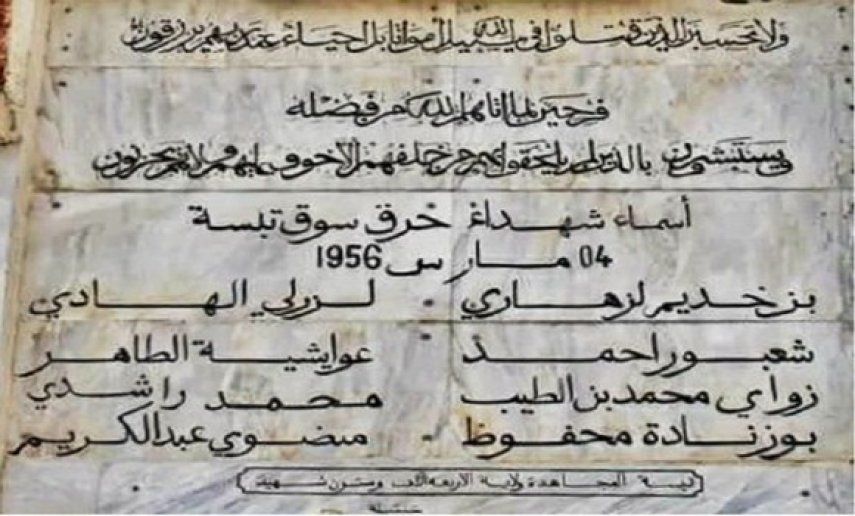 ولا تحسبن الذين قتلوا في سبيل الله أمواتا بل أحياء عند ربهم يرزقون
فرحين بما اتاهم الله من فضله
ويستبشرون بالذين لم يلحقوا بهم من خلفهم الاخوف عليهم ولا هم يحزنون
أسماء شهداء خرق سوق تبسة
04 مارس 1956
بن خديم لزهاري - لزرلي الهادي
شعبور احمد عوايشية الطاهر
زواي محمد بن الطيب محمد راشدي
بوزنادة محفوظ - منضوي عبدالكريم
المجاهدة ولاية الاربعة الاف وستون شهيد